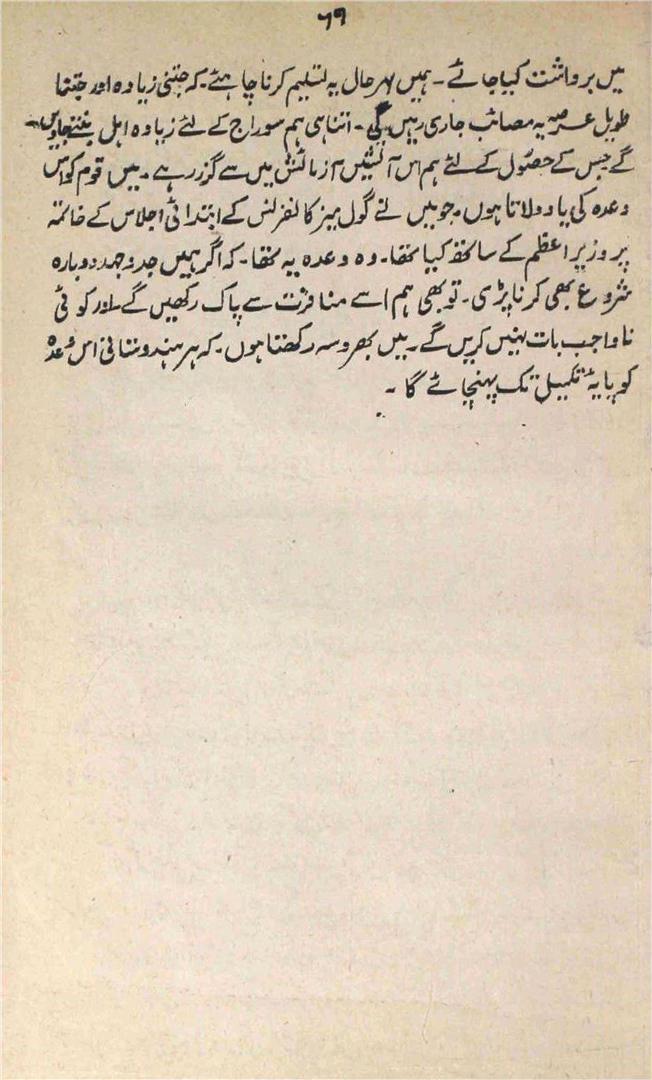 ۶۹
میں برداشت کیا جائے ۔ ہمیں بہر حال یہ تسلیم کرنا چاہئے ۔ کہ جتنی زیادہ اور جتنا
طویل عرصہ یہ مصائب جاری رہیں گی ۔ اتنا ہی ہم سوراج کے لئے زیادہ اہل بنتے جاویں
گے جس کے حصول کے لئے ہم اس آتشیں آزمائش میں سے گزر رہے ۔ میں قوم کو اس
وعدہ کی یاد دلاتا ہوں ۔ جو میں نے گول میز کانفرنس کے ابتدائی اجلاس کے خاتمہ
پر وزیر اعظم کے ساتھ کیا تھا ۔ وہ وعدہ یہ تھا ۔ کہ اگر ہمیں جدوجہد دوبارہ
شروع بھی کرنا پڑی ۔ تو بھی ہم اسے منافرت سے پاک رکھیں گے ۔ اور کوئی
ناواجب بات نہیں کریں گے ۔ میں بھروسہ رکھتا ہوں ۔ کہ ہر ہندوستانی اس وعدہ
کو پایۂ تکمیل تک پہنچائے گا ۔